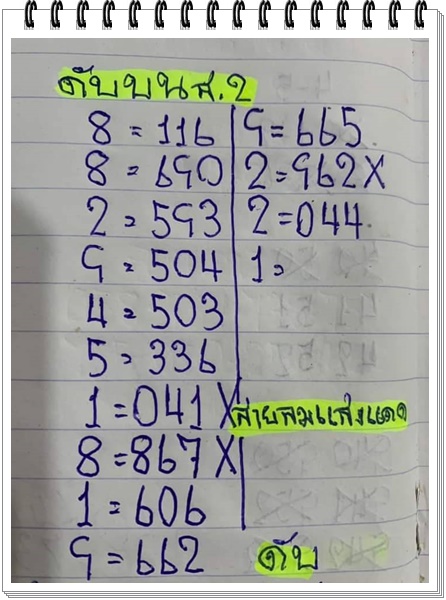 ดับบนส.2
8 = 116
8 = 690
2 = 593
9 = 504
4 = 503
5 = 336
1 = 041 X
8 = 867 X
1 = 606
9 = 662
9 = 665
2 = 962 X
2 = 044
1 =
สายลมแสงแดด
ดับ